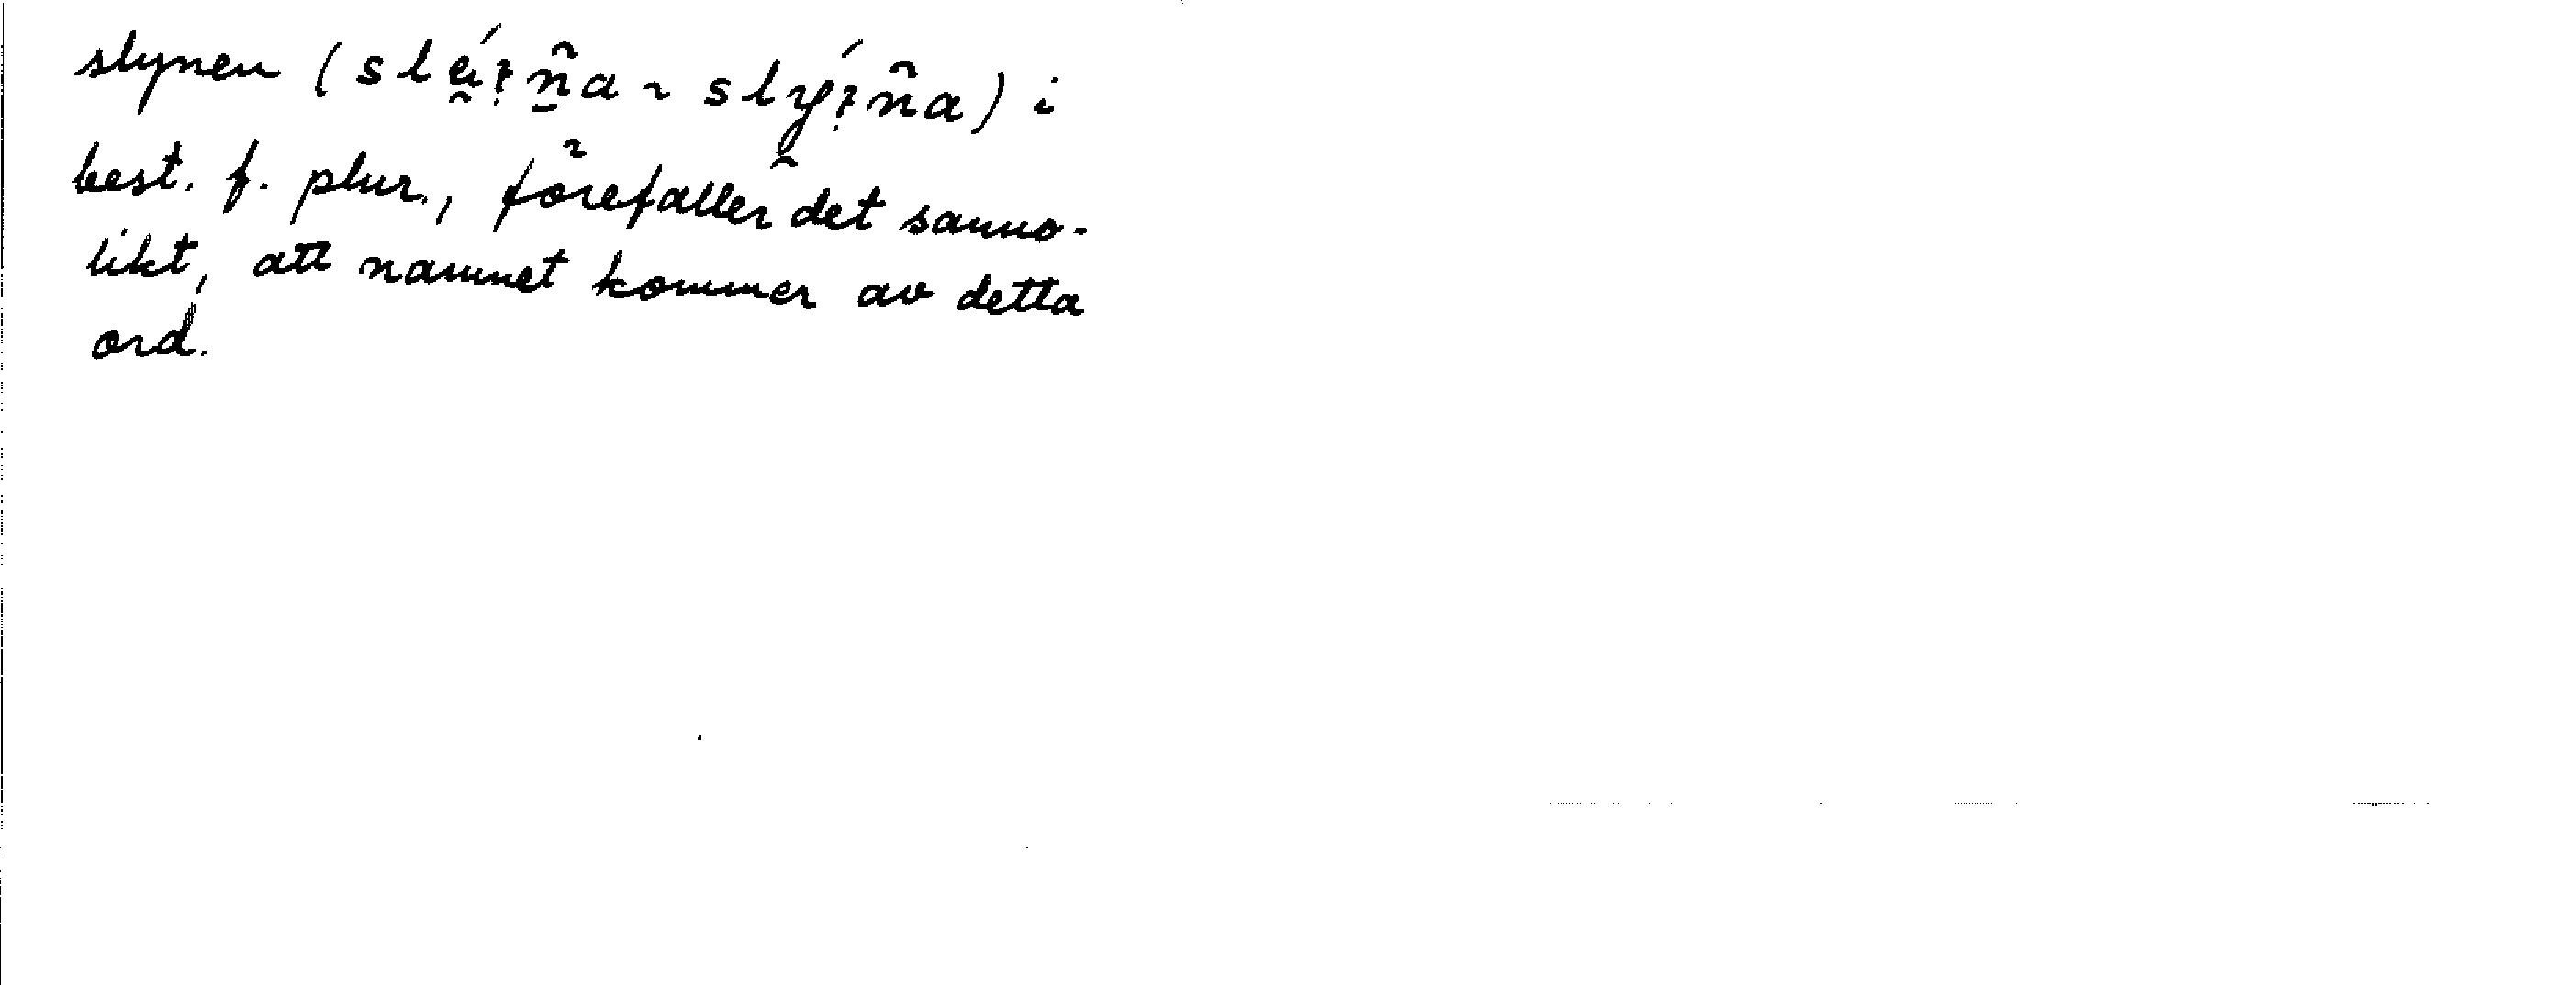 slynen (slṵ́ꝛn̠̑a ~ slý̰ꝛn̑a) i
best. f. plur., förefaller det sanno-
likt, att namnet kommer av detta
ord.